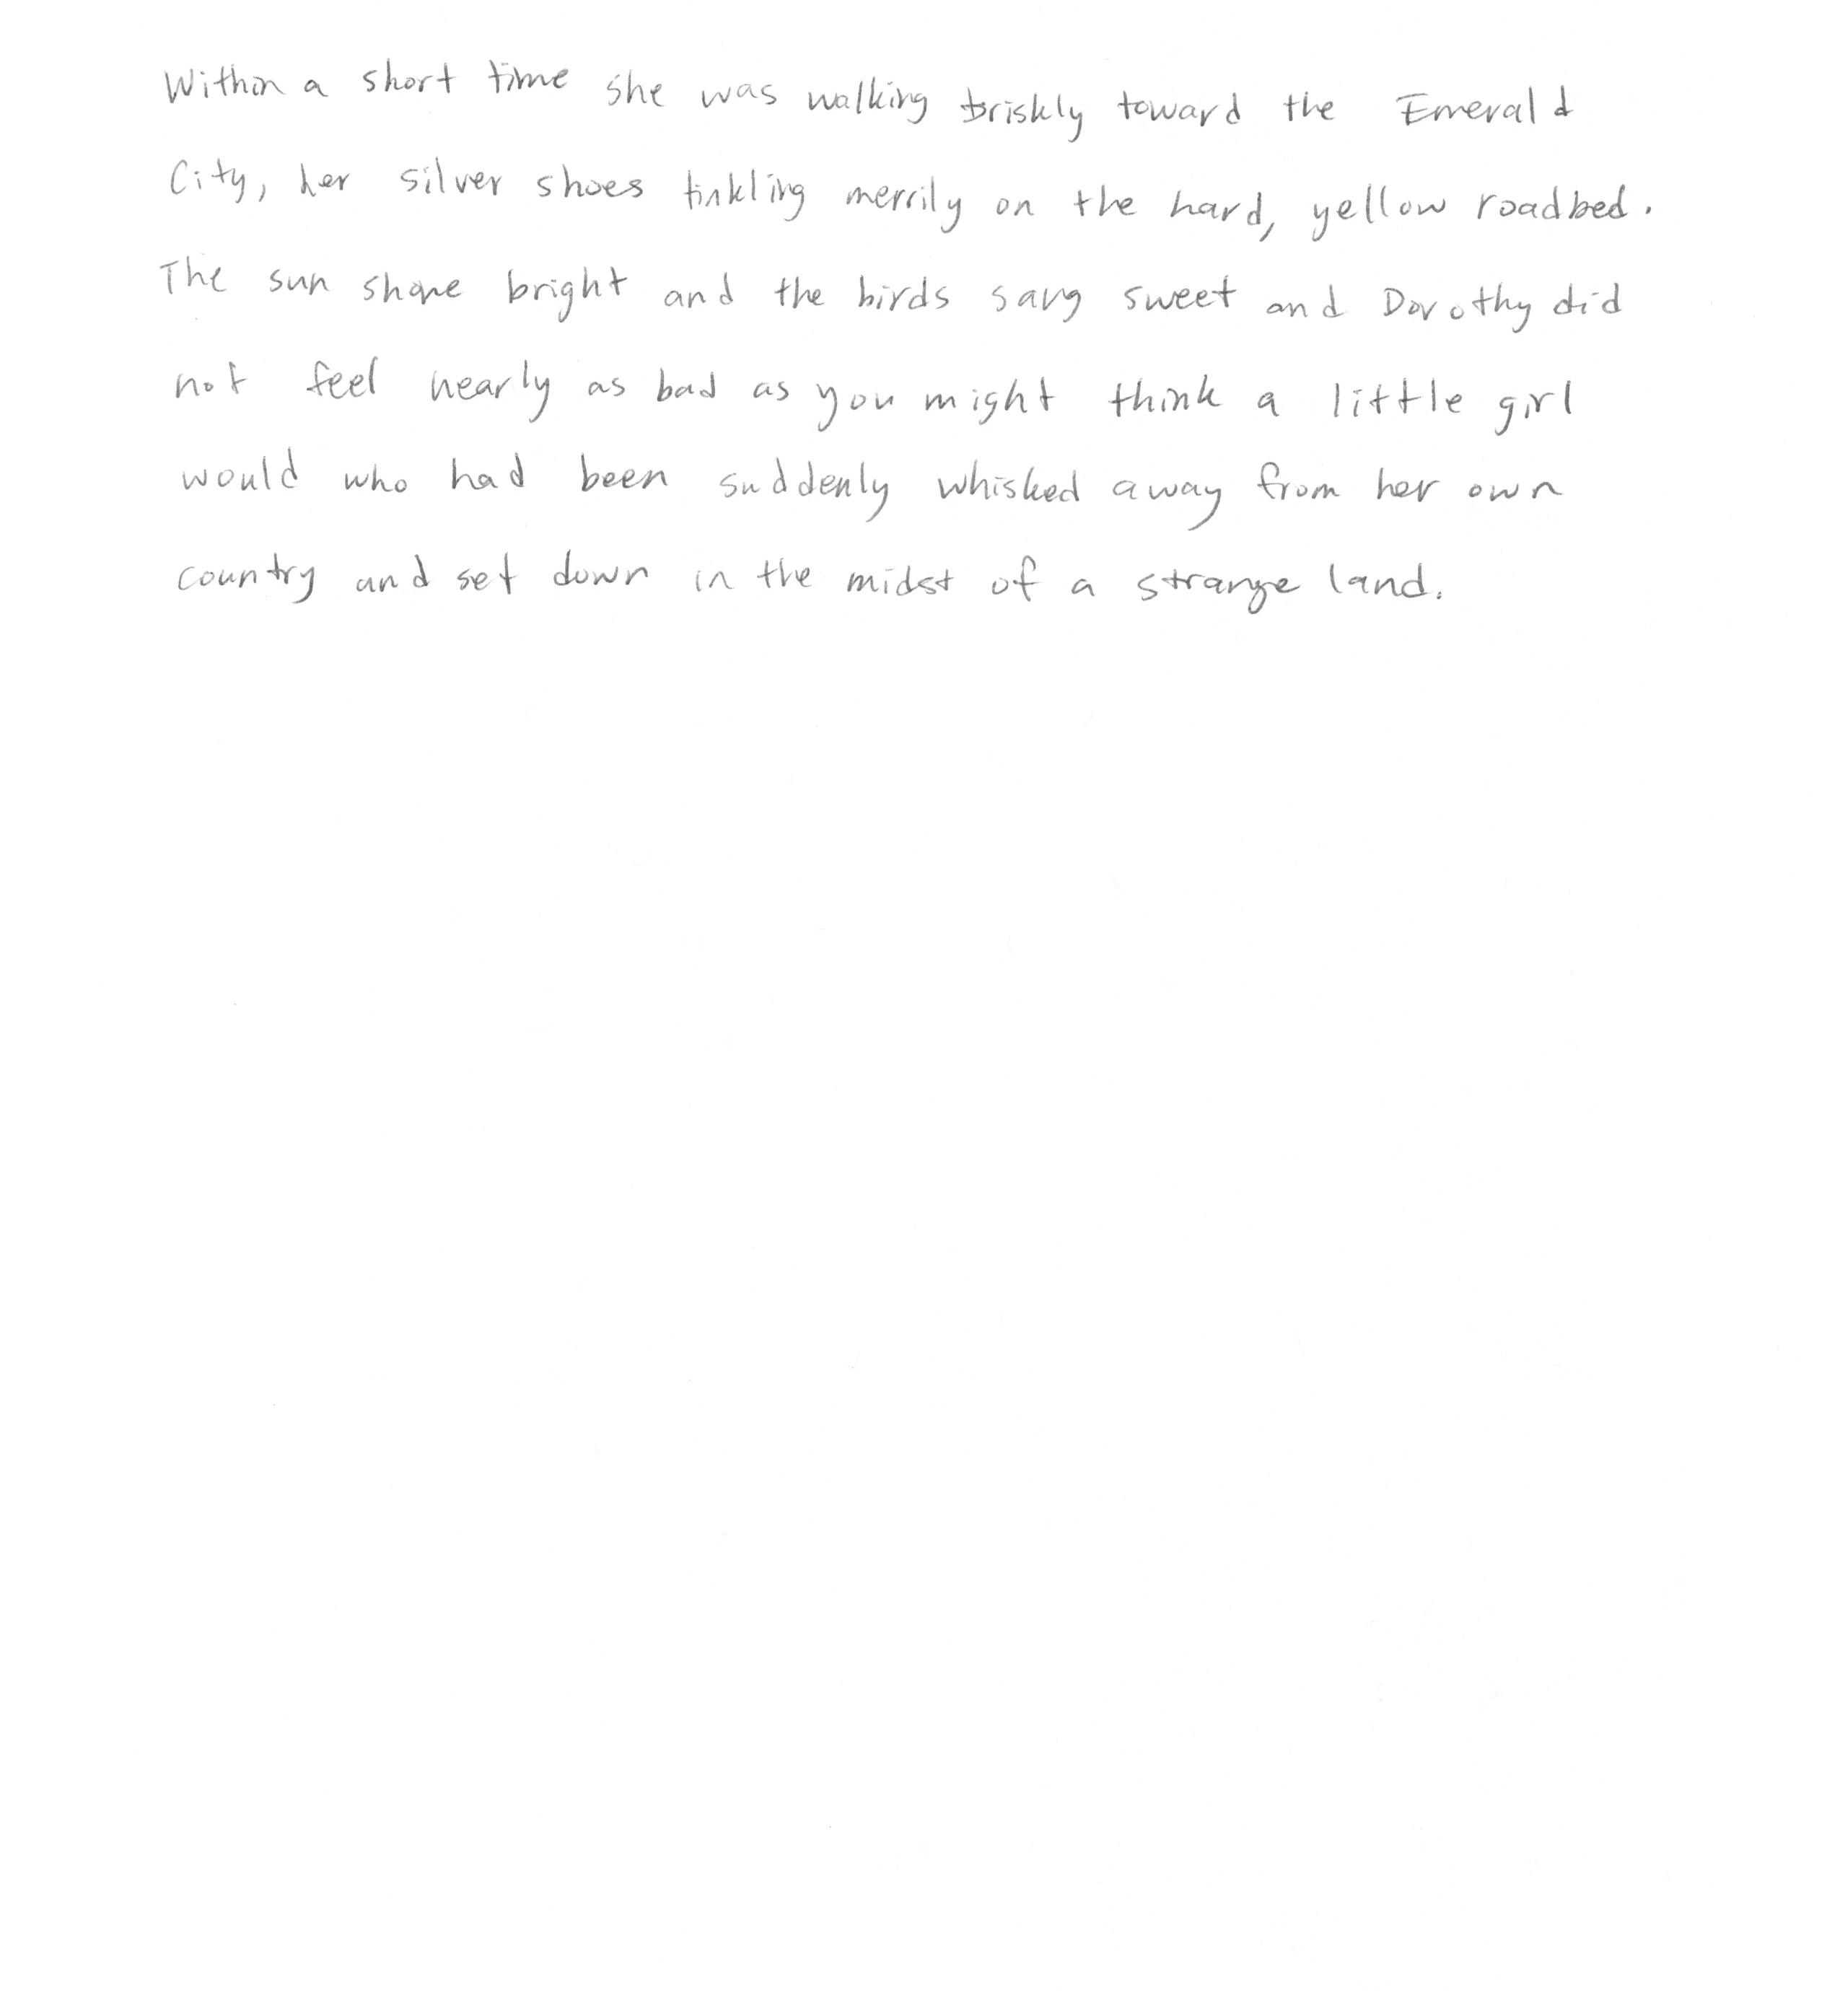 Within a short time she was walking briskly toward the Emerald
City, her silver shoes tinkling merrily on the hard, yellow roadbed.
The sun shone bright and the birds sang sweet and Dorothy did
not feel nearly as bad as you might think a little girl
would who had been suddenly whisked away from her own
country and set down in the midst of a strange land.